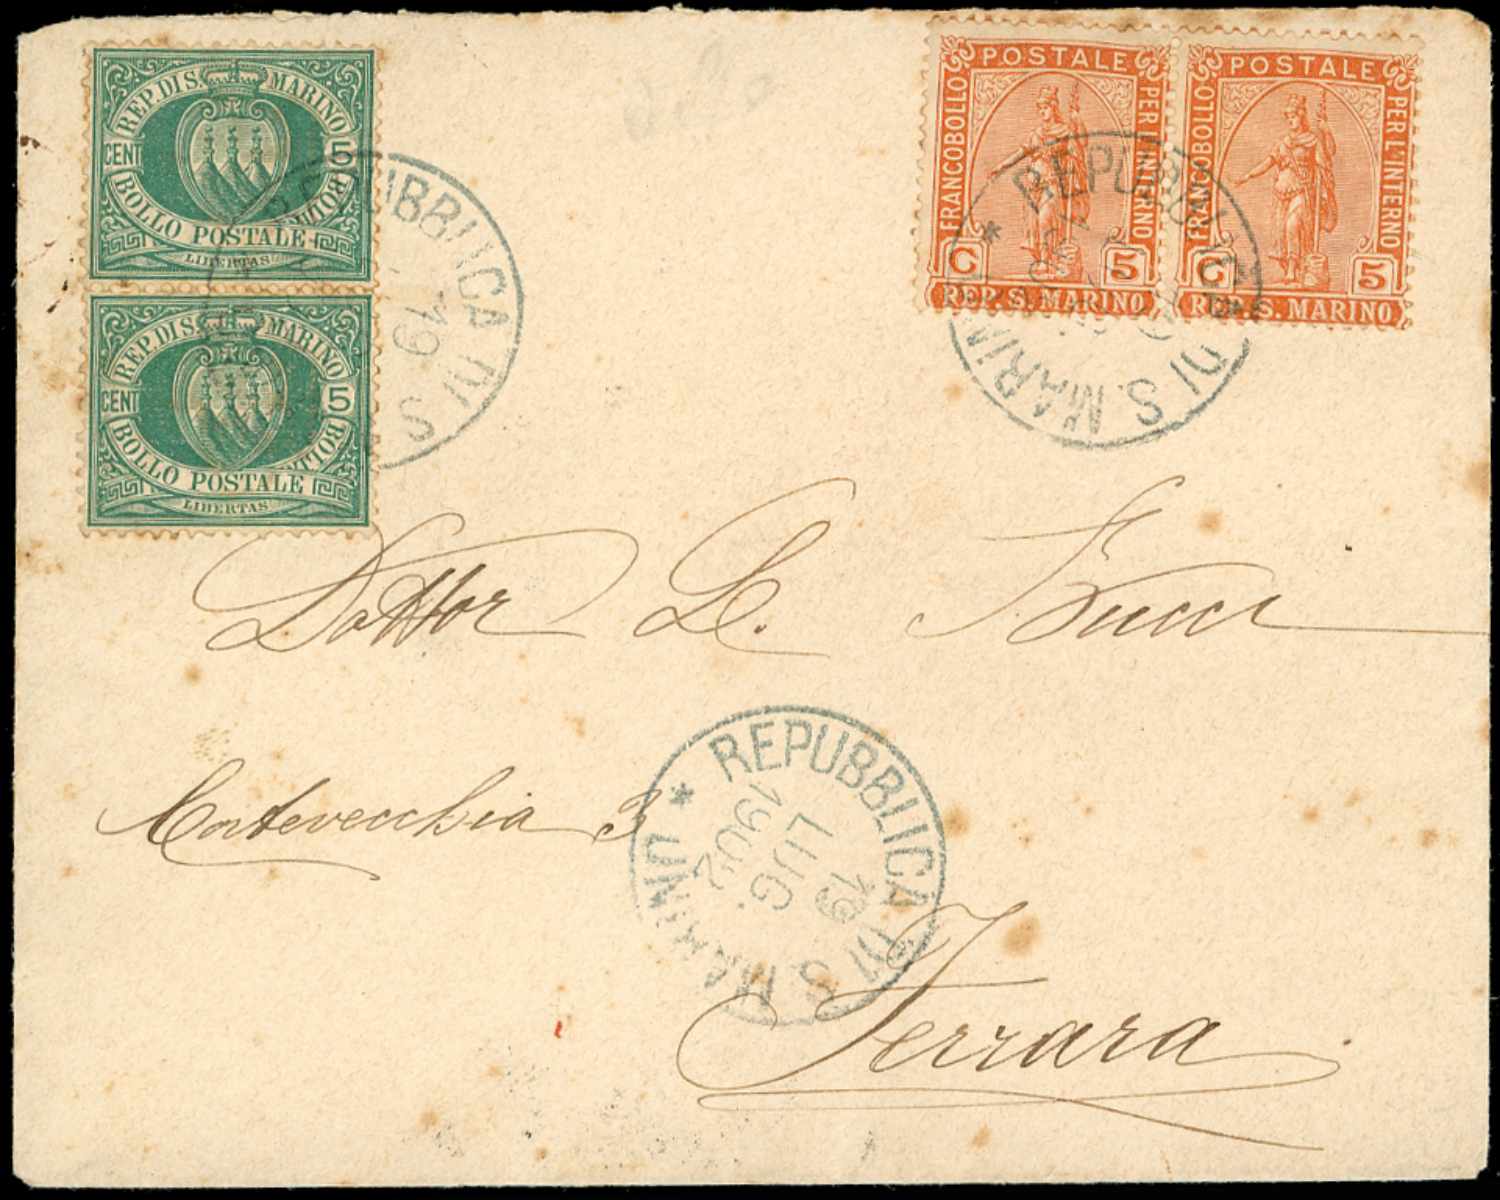 REP. DI S. MARINO
CENT 5
BOLLO POSTALE
LIBERTAS
REP. DI S. MARINO
CENT 5
BOLLO POSTALE
LIBERTAS
POSTALE
FRANCOBOLLO
PER L'INTERNO
C 5
REP. S. MARINO
POSTALE
FRANCOBOLLO
PER L'INTERNO
C 5
REP. S. MARINO
REPUBBLICA DI S.
19
* REPUBBLICA DI S. MARINO
Dottor L. Bucci
* REPUBBLICA DI S. MARINO
19
LUG.
1902
3
Ferrara.